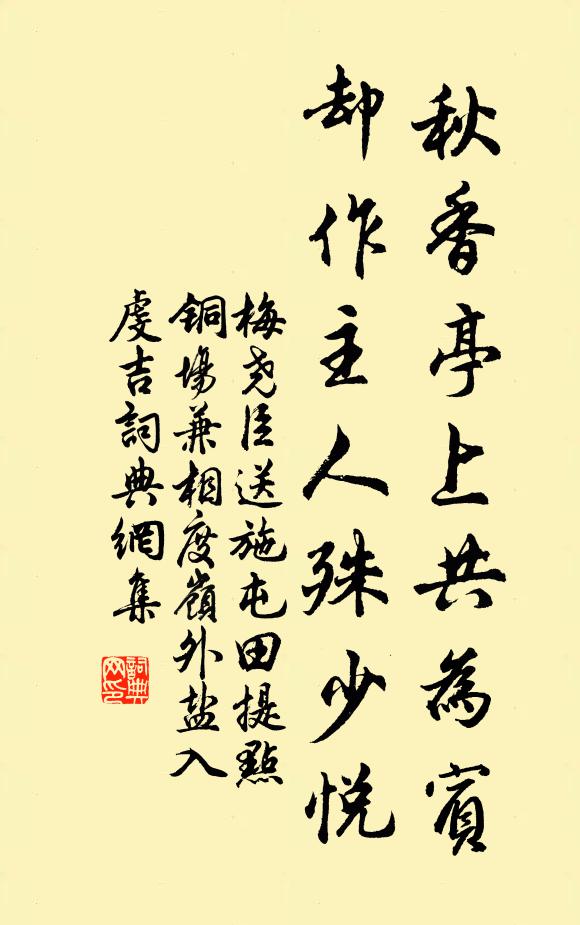 秋香亭上共為賓
却作主人殊少悅
梅堯臣送施屯田提點
銅場兼相度嶺外盐入
虔吉詞典網集
詞典网印